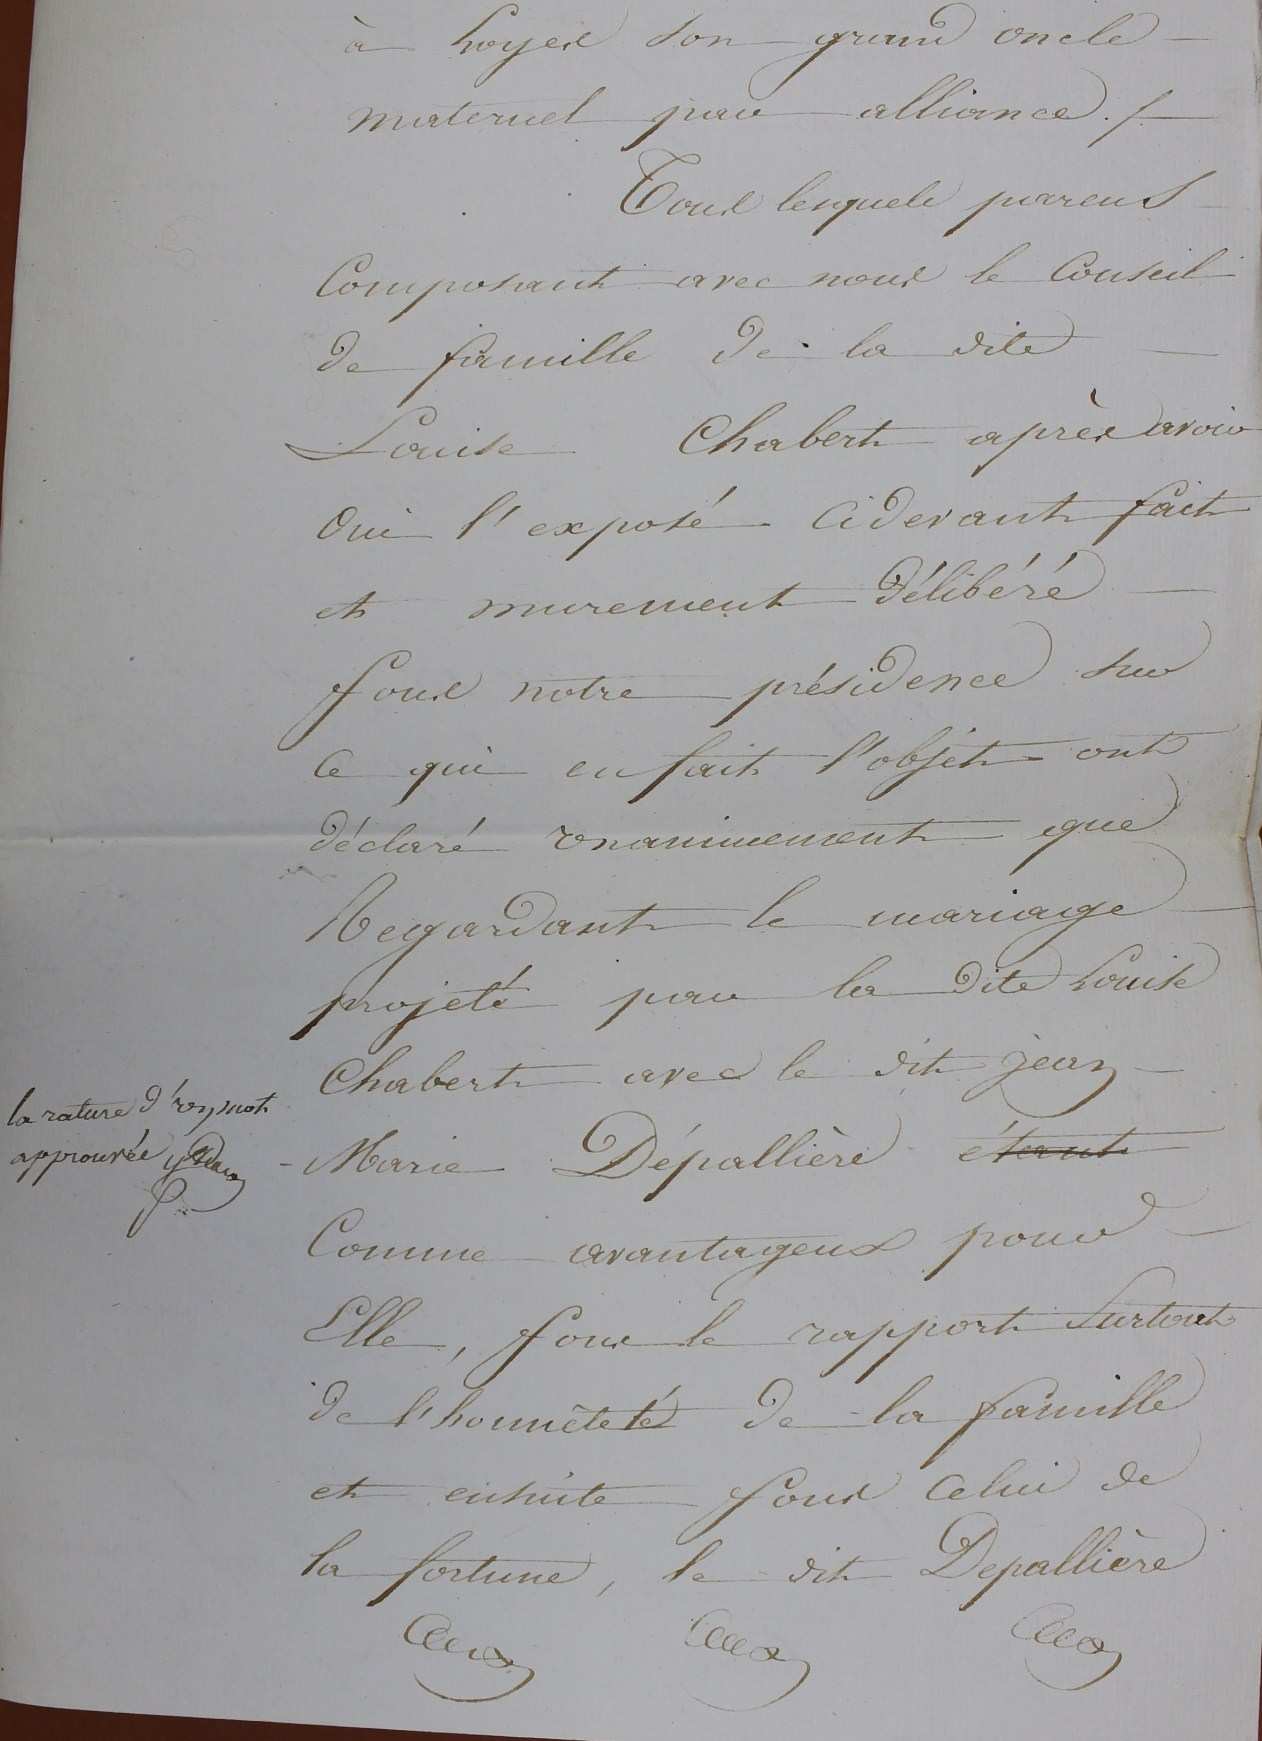 à Loyes son grand oncle
maternel par alliance ./.
Tous lesquels parens
Composant avec nous le Conseil
de famille de la dite
Louise Chabert après avoir
Oui l'exposé cidevant fait
et murement délibéré
sous notre présidence sur
ce qui en fait l'objet ont
déclaré unanimement que
Regardant le mariage
projeté par la dite Louise
Chabert avec le dit jean
la rature d'un mot
approuvée
Marie Dépallière étant
Comme avantageux pour
Elle, sous le rapport surtout
de l'honnêteté de la famille
et ensuite sous celui de
la fortune, le dit Depallière